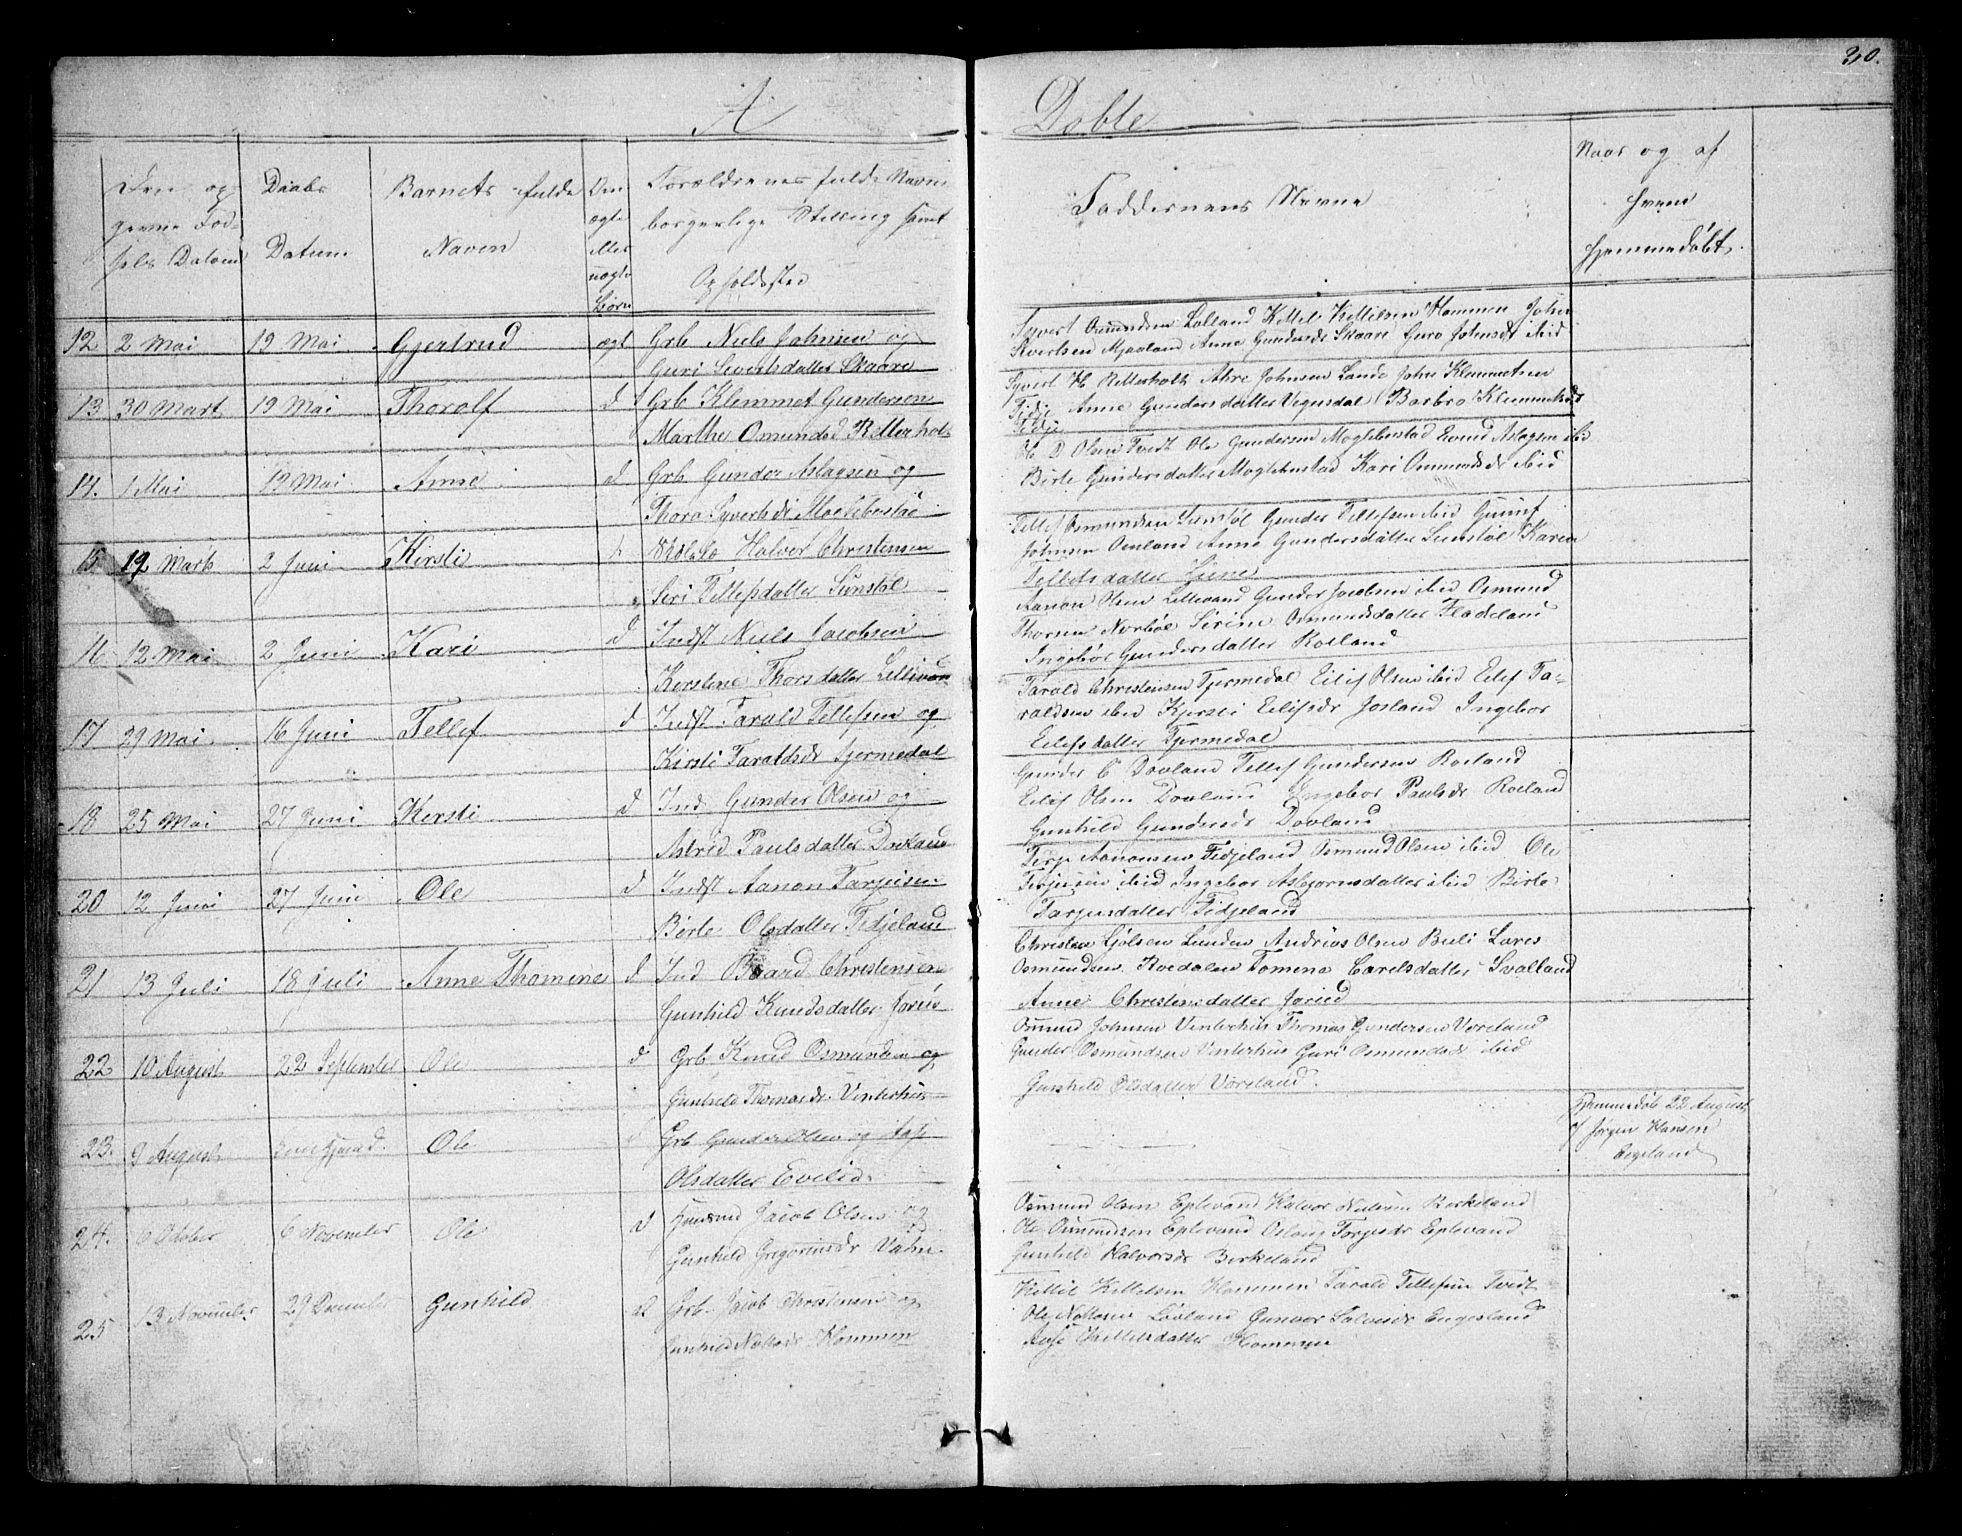 30.
A
Døbte
Naar og af
hvem
hjemmedøbt.
Barnets fulde
Navn
Daabs
Datum.
Den
ægte
eller
uægte
Børn
Forældrenes fulde Navn
borgerlige Stilling samt
Opholdssted
Faddernens Navne
12 2 Mai 19 Mai Gjertrud ægt Grb Niels Johnsen og
Guri Sivertsdatter Skaare
Syvert Osmundsen Lolland Kittel Kittelsen Hommen John
Sivertsen Mjaaland Anne Gundersdr Skaare Guro Johnsdr ibid
13 30 Mart 19 Mai Thorolf d Grb Klemmet Gundersen
Marthe Osmundsd Retterholt
Syvert H. Retterholt Ahre Johnsen Lande John Klemmetsen
Fidje Anne Gundersdatter Vegusdal Barbro Klemmetsdr
Fidje
14. 1 Mai 19 Mai Anne d Grb Gunder Aslagsen og
Thora Syvertsdr Moglebostad
Ole D Olsen Tvedt Ole Gundersen Moglebostad Evind Aslagsen ibid
Birte Gundersdatter Moglebostad Kari Osmundsdr ibid
15 19 Marts 2 Juni Kersti d Halvor Christensen
Siri Tellefsdatter Sunstøl
Tellef Osmundsen Sunstøl Gunder Tellefsen ibid Gunuf
Johnsen Omland Anne Gundersdatter Sunstøl Karen
Tellefsdatter Liene
16 12 Mai 2 Juni Kari d Indst Niels Jacobsen
Kerstine Thorsdatter Lillevan
Aanon Olsen Lillevand Gunder Jacobsen ibid Osmund
Thorsen Norbøe Sirine Osmundsdatter Fladeland
Ingebor Gundersdatter Roiland
17 29 Mai 16 Juni Tellef d Indst Tarald Tellefsen og
Kirsti Taraldsdr Tjermedal
Tarald Christensen Tjermedal Eilif Olsen ibid Eilef Ta-
raldsen ibid Kjersti Eilifsdr Josland Ingebor
Eilefsdatter Tjermedal
18 25 Mai 27 Juni Kersti d Ind. Gunder Olsen og
Astrid Paulsdatter Dovland
Gunder C Dovland Tellef Gundersen Roiland
Eilif Olsen Dovland Ingebor Paulsdr Roiland
Gunhild Gundersdr Dovland
20 12 Juni 27 Juni Ole d Indst Aanon Tarjeisen
Birte Olsdatter Fidjeland
Terje Aanonsen Fidjeland Osmund Olsen ibid Ole
Terjeisen ibid Ingebor Asbjornsdatter ibid Birte
Tarjeisdatter Fidjeland
21 13 Juli 18 Juli Anne Thomene d Ind Baard Christensen
Gunhild Knudsdatter
Christen Lunden Andreas Olsen Lars
Osmundsen Roedalen Tomene Carelsdatter Svalland
Anne Christensdatter
22 10 August 22 September Ole d Grb Knud Osmundsen og
Gunhild Thomasdr Vinterhus
Osmund Johnsen Vinterhus Thomas Gundersen Voreland
Gunder Osmundsen Vinterhus Guri Osmundsdr ibid
Gunhild Olsdatter Voreland.
23. 9 August Ole Grb Gunder Olsen og Aase
Olsdatter Evelid
Hjemmedøbt 22 August
af Jørgen Hansen
24. 6 Octobr 6 November Ole d Huusmd Jacob Olsen og
Gunhild Gregoriusdr Vatne
Osmund Olsen Eplevand Halvor Nielsen Berkeland
Ole Osmundsen Eplevand Oslaug Torgusdr Eplevand
Gunhild Halvorsdr Berkeland
25 13 November 29 December Gunhild d Grb. Jacob Christensen og
Gunhild Nottosdr Hommen
Kittil Kittelsen Hommen Tarald Tellefsen Tvedt
Ole Nottosen Løvland Gunvor Salvesdr Engesland
Aase Kittelsdatter Hommen